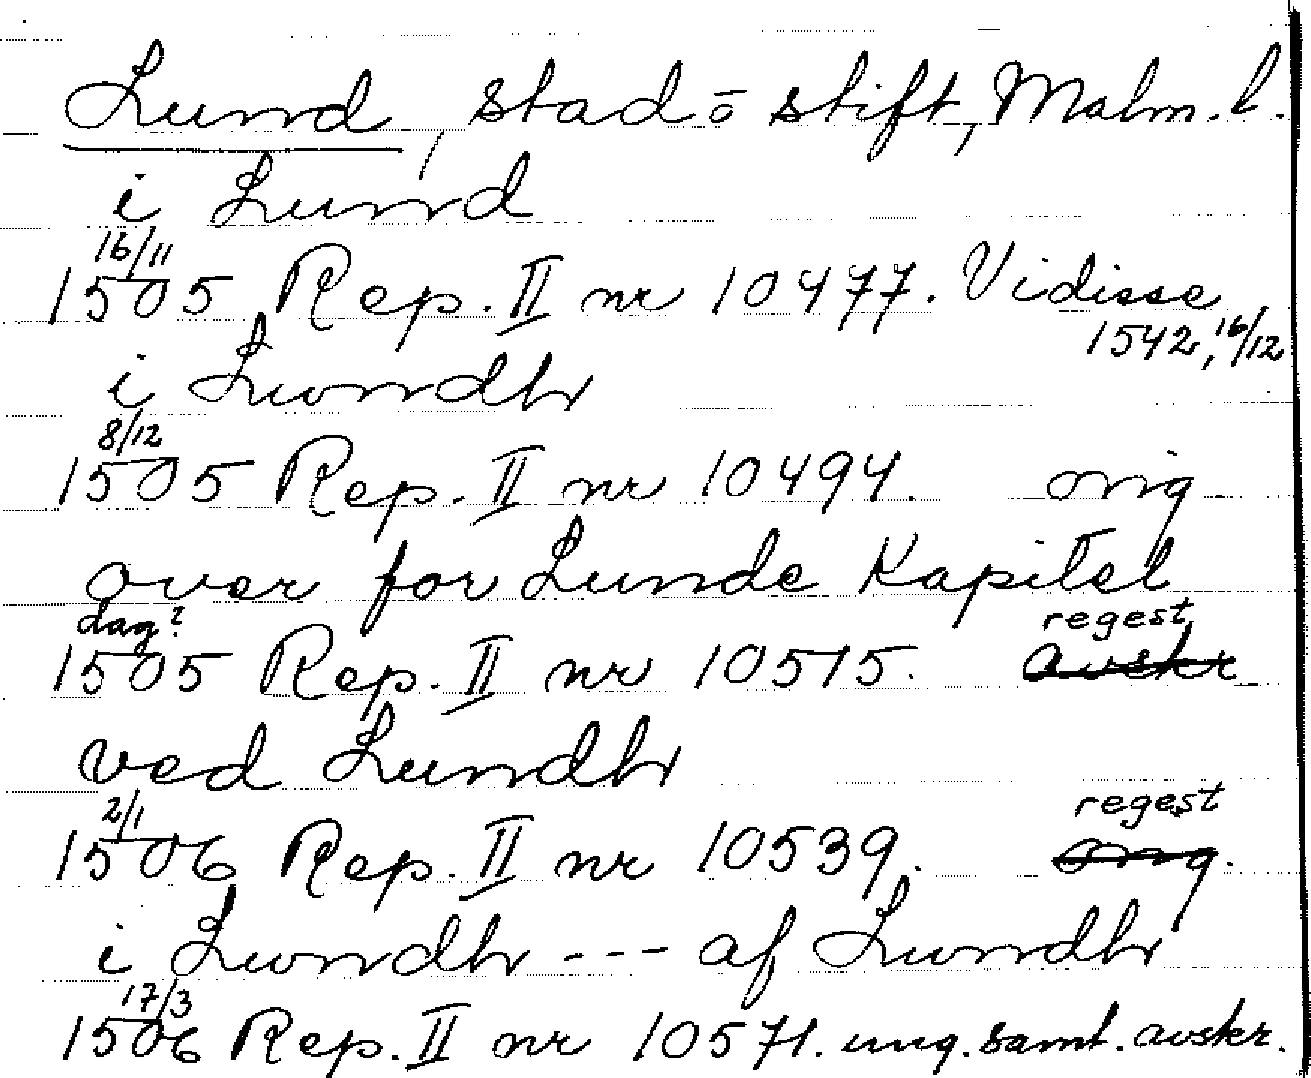 Lund, stad o stift, Malm. l.
i Lund
16/11
1505 Rep. II nr 10477. Vidisse
1542, 16/12
i Lwndh
8/12
1505 Rep. II nr 10494. orig
over for Lunde Kapitel
dag? regest
1505 Rep. II nr 10515. avskr
ved Lundh
2/1 regest
1506 Rep. II nr 10539. orig.
i Lwndh --- af Lwndh
17/3
1506 Rep. II nr 10571. ung. samt. avskr.